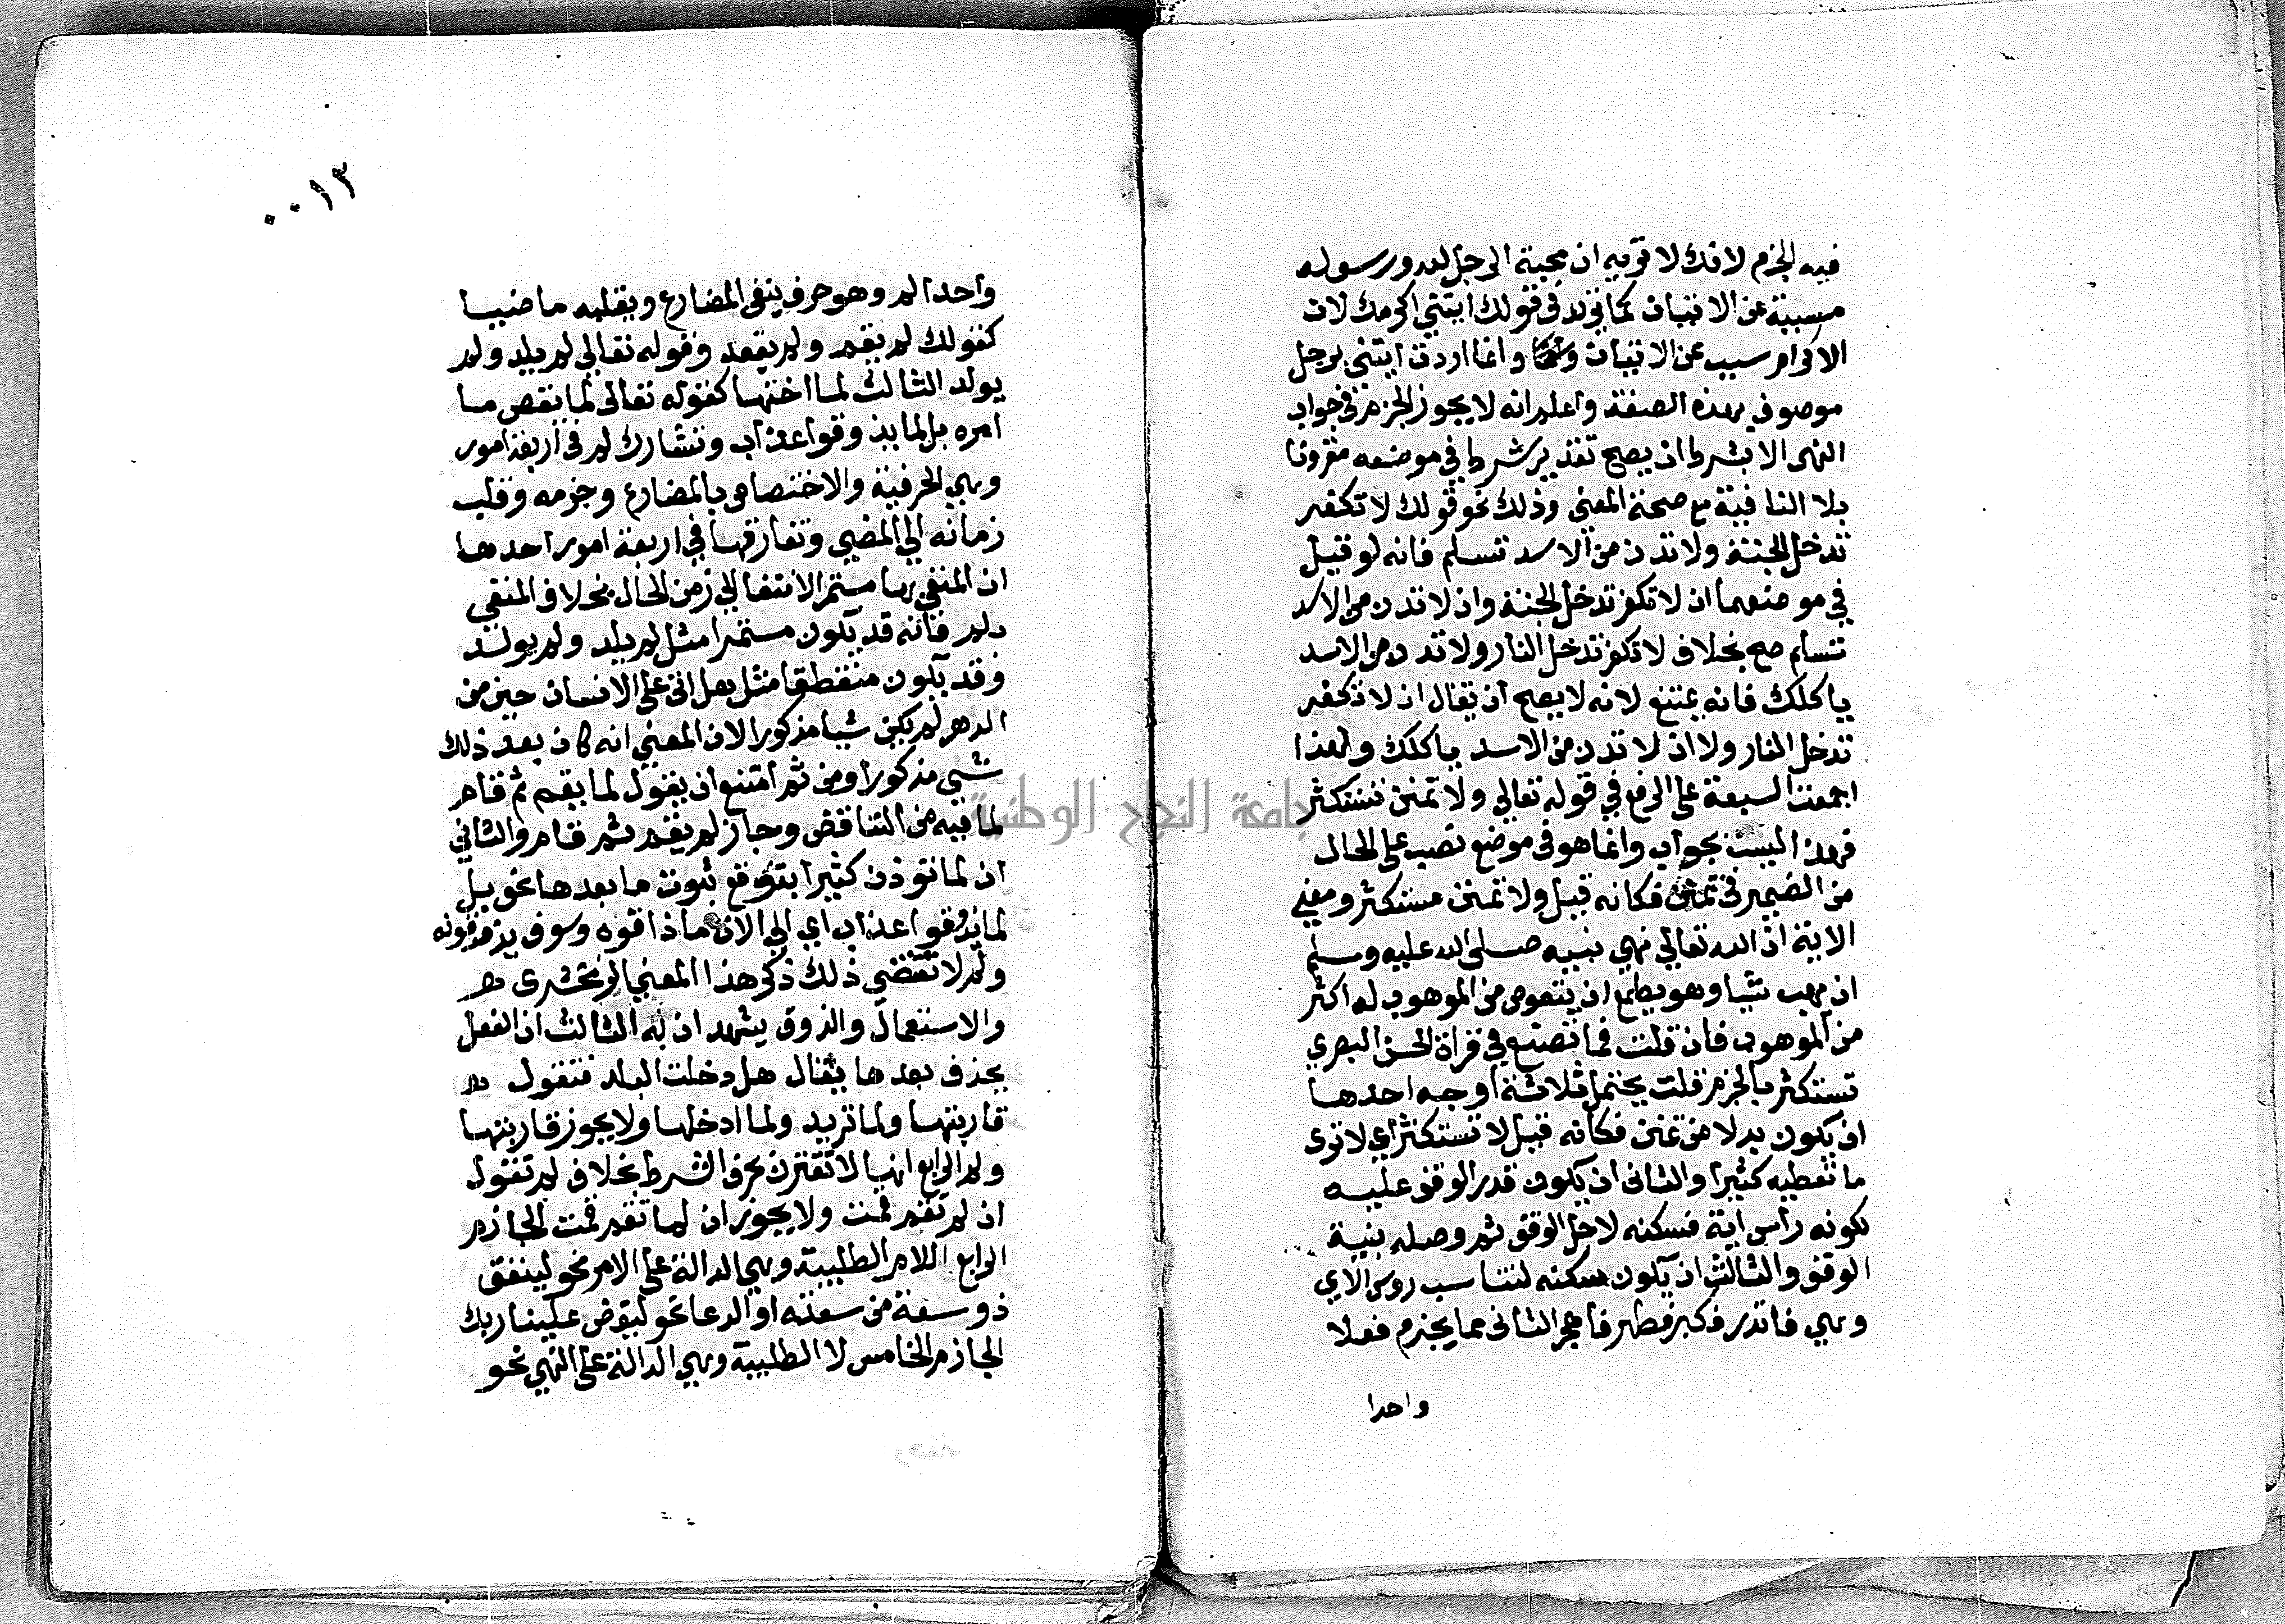 فيه الجزم لانك لا تريد ان محبة الرجل لله ورسوله
مسببة عن الاتيان كما تريد في قولك ايتني اكرمك لان
الاكرام سبب عن الاتيان وانما اردت ايتني برجل
موصوف بهذه الصفة واعلم انه لا يجوز الجزم في جواب
النهي الا بشرط ان يصح تقدير شرط في موضعه مقرونا
بلا النافية مع صحة المعني وذلك نحو قولك لا تكفر
تدخل الجنة ولا تدن من الاسد تسلم فانه لو قيل
في موضعهما ان لا تكفر تدخل الجنة وان لا تدن من الاسد
تسلم صح بخلاف لا تكفر تدخل النار ولا تدن من الاسد
ياكلك فانه يمتنع لانه لا يصح ان يقال ان لا تكفر
تدخل النار ولا ان لا تدن من الاسد ياكلك ولهذا
اجمعت السبعة على الرفع في قوله تعالي ولا تمنن تستكثر
فهذا ليست بجواب وانما هو في موضع نصب على الحال
من الضمير في تمنن فكانه قيل ولا تمنن مستكثر ومعني
الاية ان الله تعالي نهي نبيه صلى الله عليه وسلم
ان يهب شيا وهو يطمع ان يتعوض من الموهوب له اكثر
من الموهوب فان قلت فما تصنع في قراة الحسن البصري
تستكثر بالجزم قلت يحتمل ثلاثة اوجه احدها
ان يكون بدلا من تمنن فكانه قيل لا تستكثر اي لا تري
ما تعطيه كثيرا والثاني ان يكون قدر الوقف عليه
لكونه راس اية فسكنه لاجل الوقف ثم وصله بنية
الوقف والثالث ان يكون سكنه لتناسب روس الاي
وهي فانذر فكبر فطهر فاهجر الثاني مما يجزم فعلا
واحدا
٠٠١٣
واحدا لم وهو حرف ينفي المضارع ويقلبه ماضيا
كقولك لم يقم ولم يقعد وقوله تعالي لم يلد ولم
يولد الثالث لما اختها كقوله تعالى لما يقض ما
امره بل لما يذوقوا عذاب وتشارك لم في اربعة امور
وهي الحرفية والاختصاص بالمضارع وجزمه وقلب
زمانه الي المضي وتفارقها في اربعة امور احدها
ان المنفي بها مستمر الانتفا الي زمن الحال بخلاف المنفي
بلم فانه قد يكون مستمرا مثل لم يلد ولم يولد
وقد يكون منقطعا مثل هل اتى على الانسان حين من
الدهر لم يكن شيا مذكورا لان المعني انه كان بعد ذلك
شي مذكورا ومن ثم امتنع ان يقول لما يقم ثم قام
لما فيه من التناقض وجاز لم يقم ثم قام والثاني
ان لما توذن كثيرا بتوقع ثبوت ما بعدها نحو بل
لما يذوقوا عذاب اي الي الان ما ذاقوه وسوف يذوقونه
ولم لا تقتضي ذلك ذكر هذا المعني الزمخشري
والاستعمال والذوق يشهد ان به الثالث ان الفعل
يحذف بعدها يقال هل دخلت البلد فتقول
قاربتها ولما تريد ولما ادخلها ولا يجوز قاربتها
ولم الرابع انها لا تقترن بحرف الشرط بخلاف لم تقول
ان لم تقم قمت ولا يجوز ان لما تقم قمت الجازم
الرابع اللام الطلبية وهي الدالة على الامر نحو لينفق
ذو سعة من سعته او الدعا نحو ليقض علينا ربك
الجازم الخامس لا الطلبية وهي الدالة على النهي نحو
جامعة النجاح الوطنية